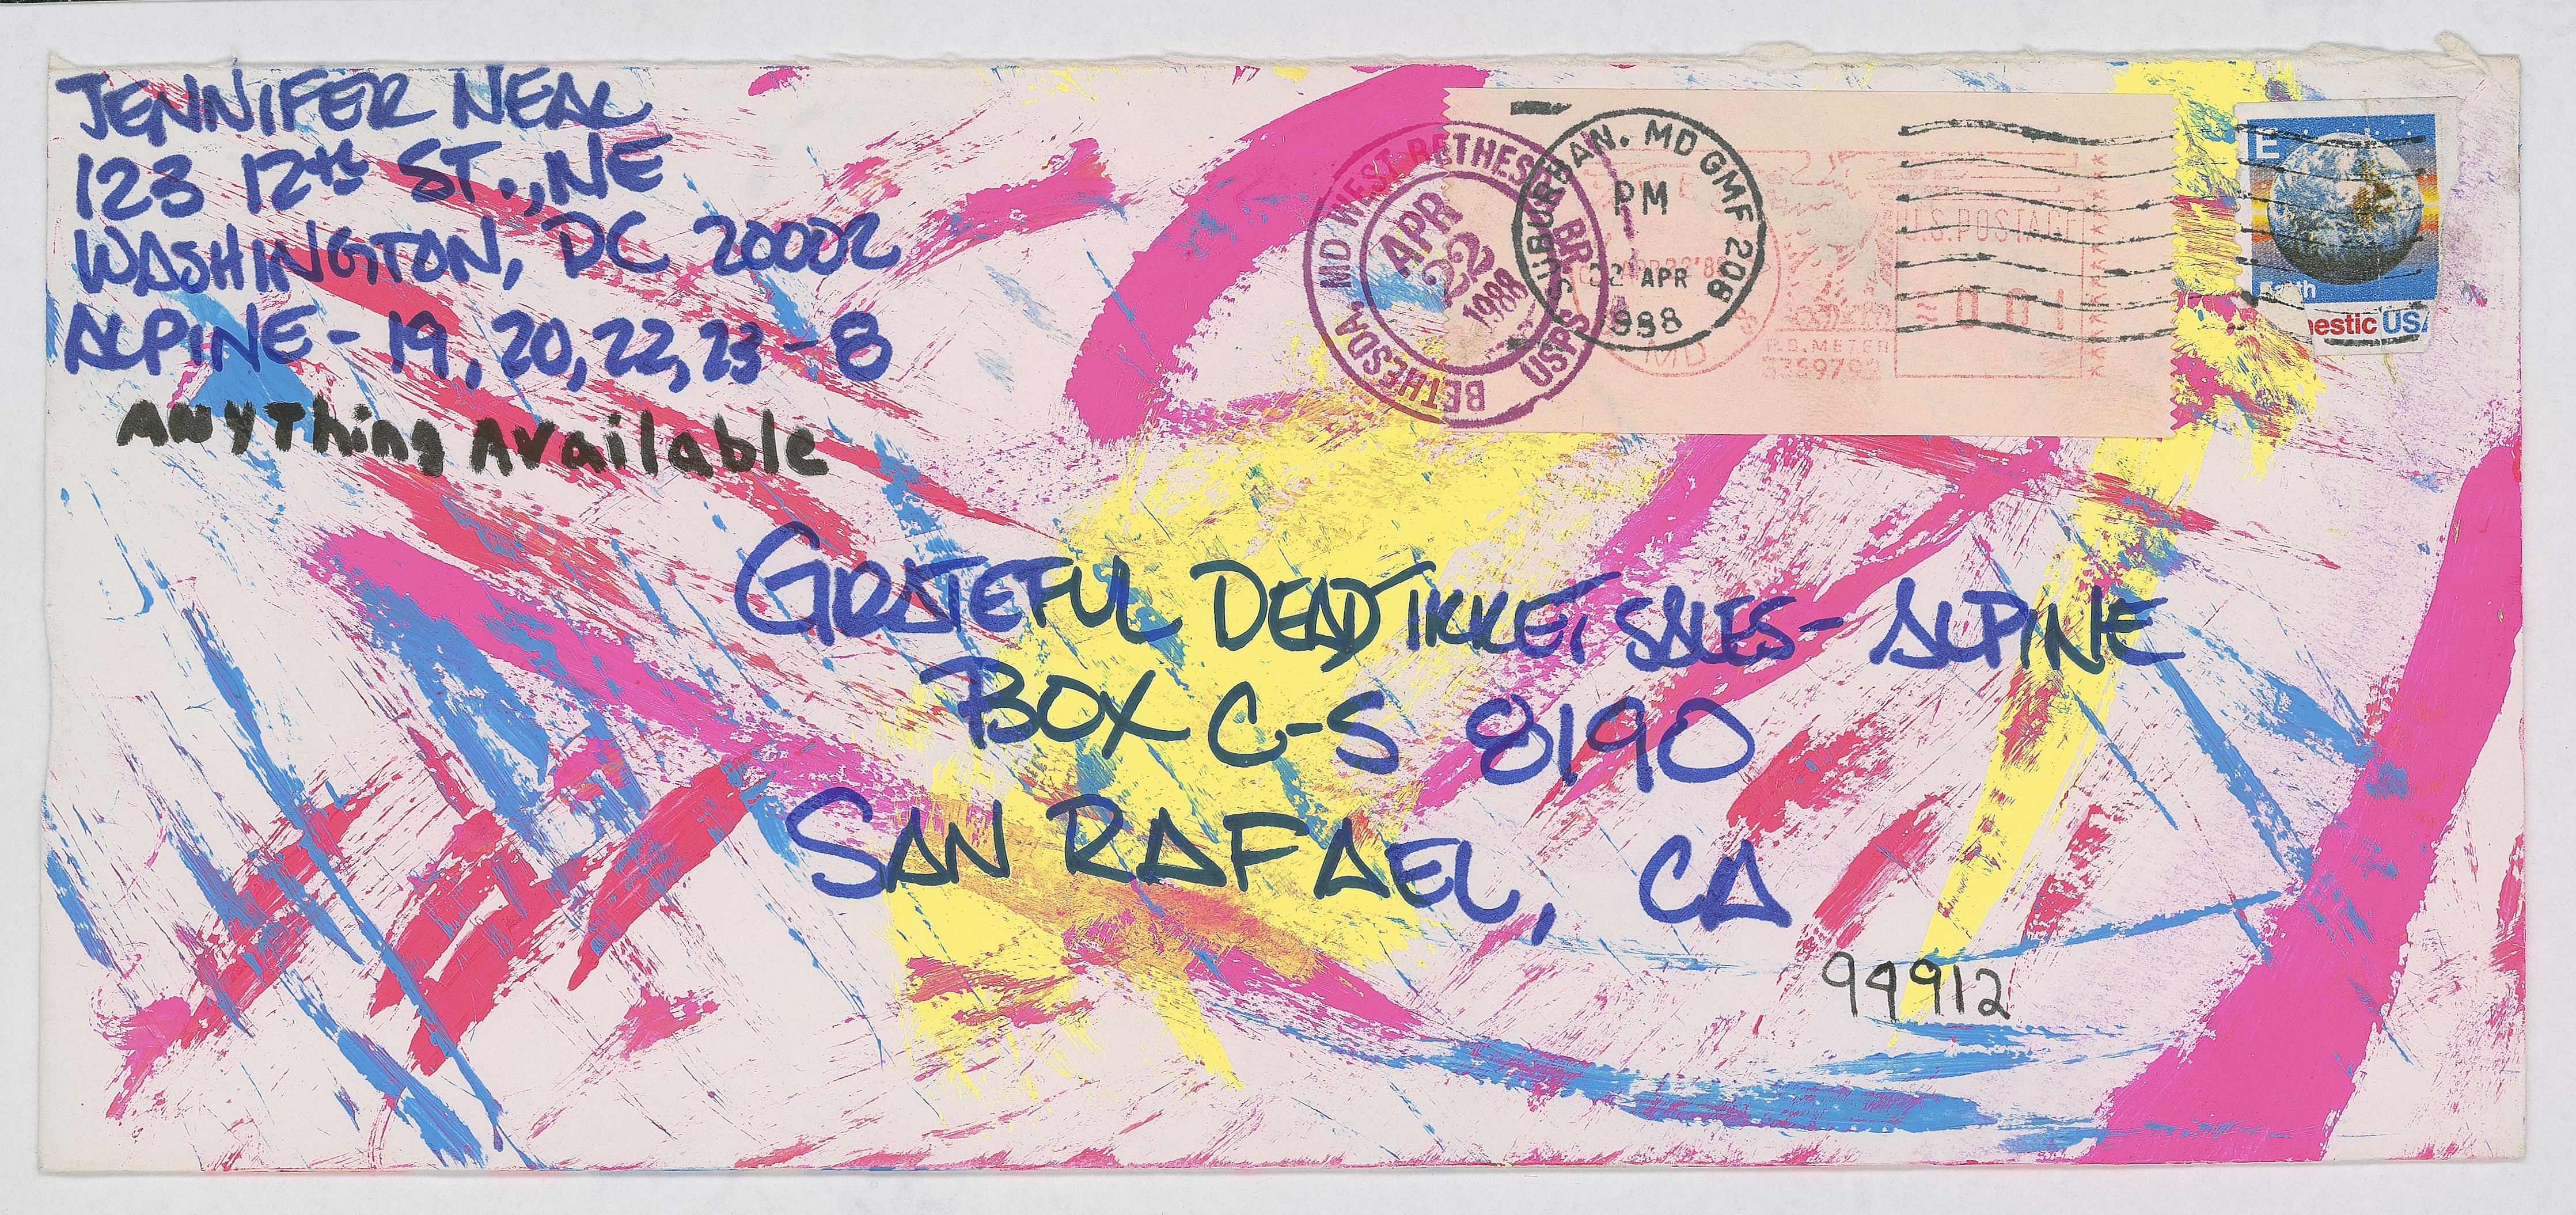 JENNIFER NEAL
123 12th ST., NE
WASHINGTON, DC 20002
ALPINE - 19, 20, 22, 23 - 8
Anything Available
BETHESDA, MD WEST BETHESDA BR. USPS
APR
22
1988
SUBURBAN, MD GMF 208
PM
22 APR
1988
U.S. POSTAGE
MD
P.B. METER
E
Earth
mestic USA
GRATEFUL DEAD TIKKET SALES - ALPINE
BOX C-S 8190
SAN RAFAEL, CA
94912